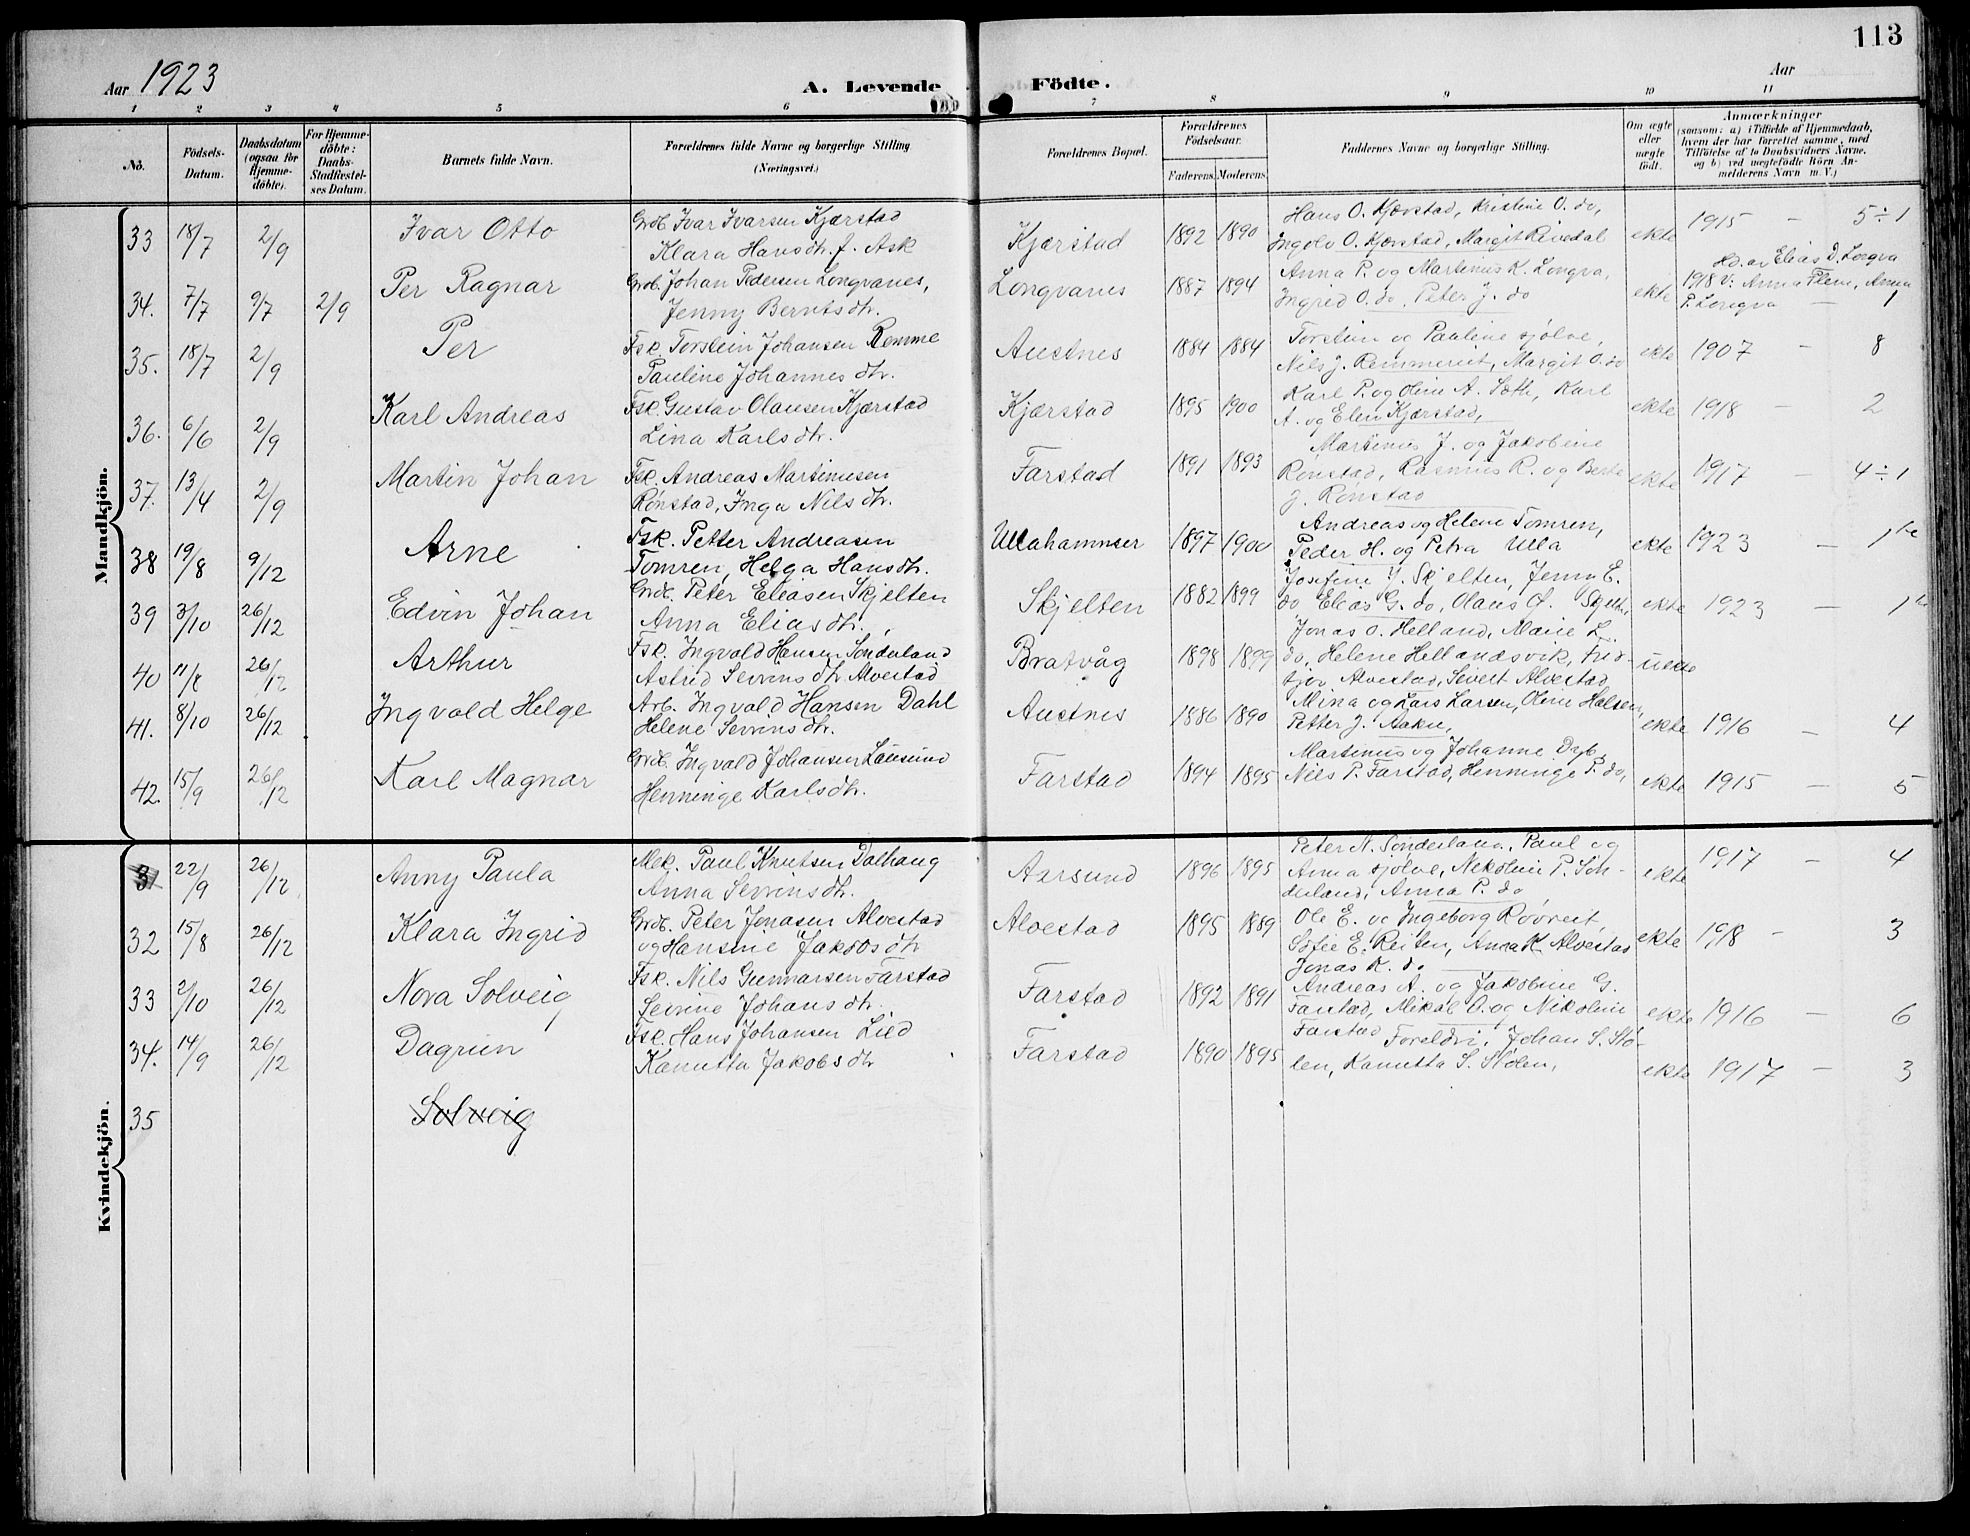 113
Aar 1923
A. Levende
Födte.
Aar
1 2 3 4 5 6 7 8 9 10 11
No.
Födsels-Datum.
Daabsdatum (ogsaa for Hjemme-döbte).
For Hjemme-döbte: Daabs-Stadfæstel-ses Datum.
Barnets fulde Navn.
Forældrenes fulde Navne og borgerlige Stilling (Næringsvei.)
Forældrenes Bopæl.
Forældrenes Födselsaar.
Faderens. Moderens.
Faddernes Navne og borgerlige Stilling.
Om ægte eller uægte födt.
Anmærkninger
(saasom: a) i Tilfælde af Hjemmedaab,
hvem der har forrettet samme, med
Tilföielse af to Daabsvidners Navne.
og b) ved uægtefödte Börn An-
melderens Navn m. V.)
Mandkjön.
33 18/7 2/9 Ivar Otto
Grdb. Ivar Ivarsen Kjærstad
Klara Hansdtr. f. Ask
Kjærstad 1892 1890
Hans O. Kjærstad, Kristine O. do,
Ingolv O. Kjærstad, Margit Rivedal
ekte 1915 – 5÷1
34. 7/7 9/7 2/9 Per Ragnar
Grdb. Johan Pedersen Longvanes,
Jenny Berntsdtr.
Longvanes 1887 1894
Anna P. og Martinus K. Longva,
Ingrid O. do, Peter J. do
ekte
Hd. av Elias D. Longva
1918 V: Anna Flem, Anna
P. Longva – 1
35. 18/7 2/9 Per
Fsk. Torstein Johansen Remme
Pauline Johannesdtr.
Austnes 1884 1884
Torstein og Pauline sjølve,
Nils J. Remmereit, Margit O. do
ekte 1907 – 8
36. 6/6 2/9 Karl Andreas
Fsk. Gustav Olausen Kjærstad
Lina Karlsdtr.
Kjærstad 1895 1900
Karl P. og Oline A. Karl
A. og Elen Kjærstad,
ekte 1918 – 2
37. 13/4 2/9 Martin Johan
Fsk. Andreas Martinusen
Rønstad, Inga Nilsdtr.
Farstad 1891 1893
Martinus J. og Jakobine
Rønstad, Rasmus R. og Berte
J. Rønstad
ekte 1917 – 4÷1
38 19/8 9/12 Arne
Fsk. Petter Andreasen
Tomren, Helga Hansdtr.
Ullahammer 1897 1900
Andreas og Helene Tomren,
Peder H. og Petra Ulla
ekte 1923 – 1ste
39 3/10 26/12 Edvin Johan
Grdb. Peter Eliasen Skjelten
Anna Eliasdtr.
Skjelten 1882 1899
Josefine J. Skjelten, Jenny E.
do Elias G. do, Olaus O. Skjelten,
ekte 1923 – 1ste
40 11/8 26/12 Arthur
Fsk. Ingvald Hansen Sønderland
Astrid Sevrinsdtr. Alvestad
Bratvåg 1898 1899
Jonas O. Helland, Marie L.
do, Helene Hellandsvik, Frid-
tjov Alvestad, Severt Alvestad
uekte
41. 8/10 26/12 Ingvald Helge
Arb. Ingvald Hansen Dahl
Helene Sevrinsdtr.
Austnes 1886 1890
Mina og Lars Larsen, Oline Halsen,
Petter J. Aakre,
ekte 1916 – 4
42. 15/9 26/12 Karl Magnar
Grdb. Ingvald Johansen Lausund
Henninge Karlsdtr.
Farstad 1894 1895
Martinus og Johanne Dryb,
Nils P. Farstad, Henninge P. do,
ekte 1915 – 5
Kvindekjön.
31 22/9 26/12 Anny Paula
Mek. Paul Knutsen Dalhaug
Anna Sevrinsdtr.
Aarsund 1896 1895
Peter N. Sønderland, Paul og
Anna sjølve, Nekoline P. Søn-
derland, Anna P. do
ekte 1917 – 4
32 15/8 26/12 Klara Ingrid
Grdb. Peter Jonasen Alvestad
og Hansine Jakobsdtr
Alvestad 1895 1889
Ole E. og Ingeborg Røvreit,
Sofie E. Reiten, Anna K. Alvestad
Jonas K. do
ekte 1918 – 3
33 2/10 26/12 Nora Solveig
Fsk. Nils Gunnarsen Farstad
Sevrine Johansdtr.
Farstad 1892 1891
Andreas A. og Jakobine G.
Farstad, Mikal O. og Nikoline
Farstad
ekte 1916 – 6
34. 14/9 26/12 Dagrun
Fsk. Hans Johansen Lied
Kanutta Jakobsdtr
Farstad 1890 1895
Foreldri, Johan S. Stø-
len, Kanutta S. Stølen,
ekte 1917 – 3
35 Solveig